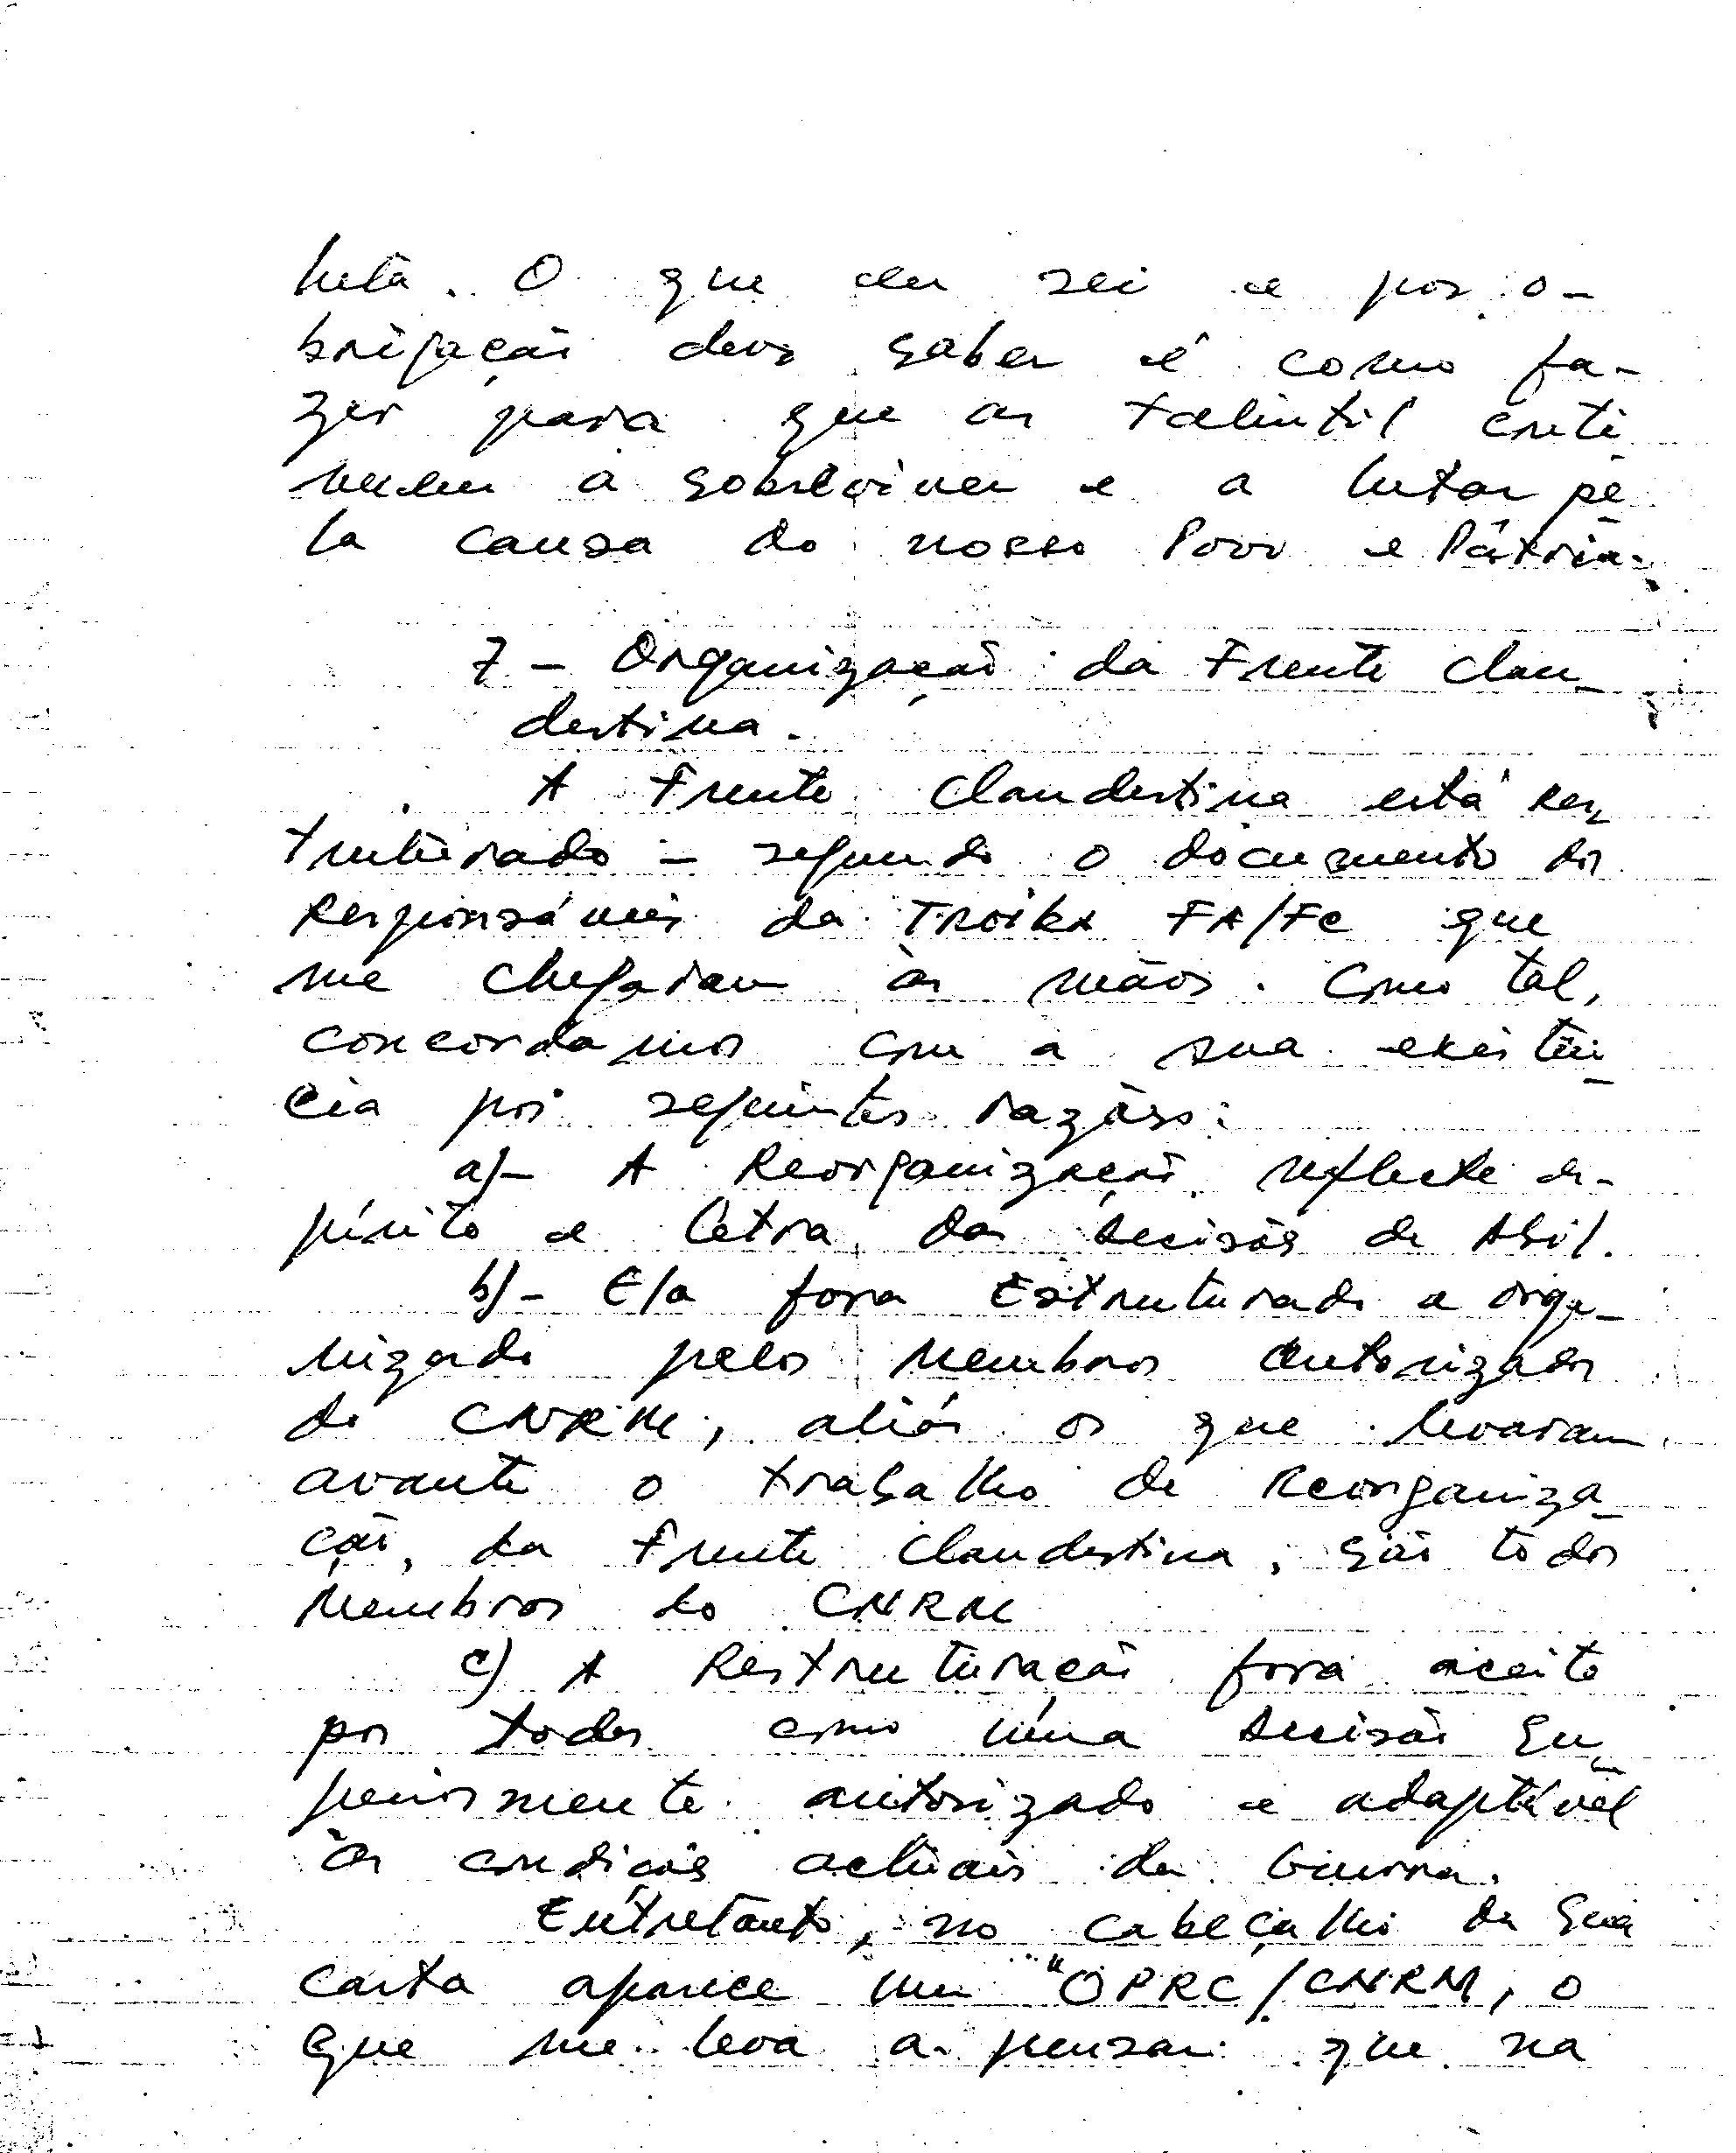 luta. O que eu sei e por o-
brigação devo saber é como fa-
zer para que as Falintil conti
nuem a sobreviver e a lutar pe
la causa do nosso Povo e Pátria.
7 - Organização da Frente Clan-
destina.
A Frente Clandestina está Res
truturado - segundo o documento dos
Responsáveis da Troika FA/FC que
me chegaram às mãos. Como tal,
concordamos com a sua existên
cia por seguintes razões:
a)- A Reorganização reflecte es-
pírito e letra das decisões de Abil.
b)- Ela fora Estruturado e orga-
nizado pelos Membros autorizados
do CNRM, aliás os que levaram
avante o trabalho de Reorganiza
ção, da Frente Clandestina, são todos
Membros do CNRM
c) A Restruturação fora aceite
por todos como uma decisão Su-
periormente autorizado e adaptável
às condições actuais da Guerra.
Entretanto, no cabeçalho da sua
carta aparece um "OPRC/CNRM, o
que me leva a pensar que na